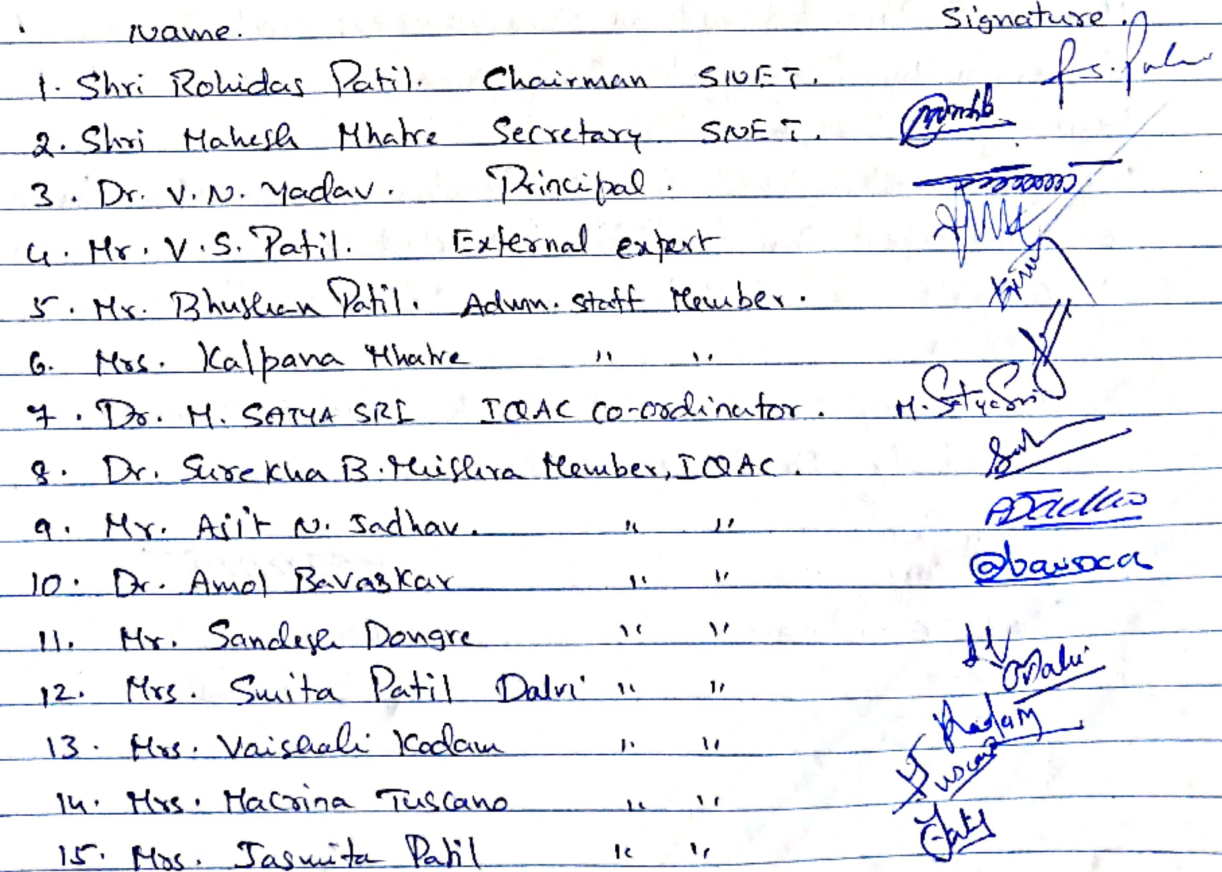 Name. Signature.
1. Shri Rohidas Patil. Chairman SNET.
2. Shri Mahesh Mhatre Secretary SNET.
3. Dr. V.N. Yadav. Principal.
4. Mr. V.S. Patil. External expert
5. Mr. Bhushan Patil. Admn. Staff Member.
6. Mrs. Kalpana Mhatre " "
7. Dr. M. SATYA SRI IQAC Co-ordinator. M. SatyaSri
8. Dr. Surekha B. Mishra Member, IQAC.
9. Mr. Ajit N. Jadhav. " "
10. Dr. Amol Bavaskar " "
11. Mr. Sandesh Dongre " "
12. Mrs. Smita Patil Dalvi " "
13. Mrs. Vaishali Kadam " " Kadam
14. Mrs. Macrina Tuscano " "
15. Mrs. Jasmita Patil " "